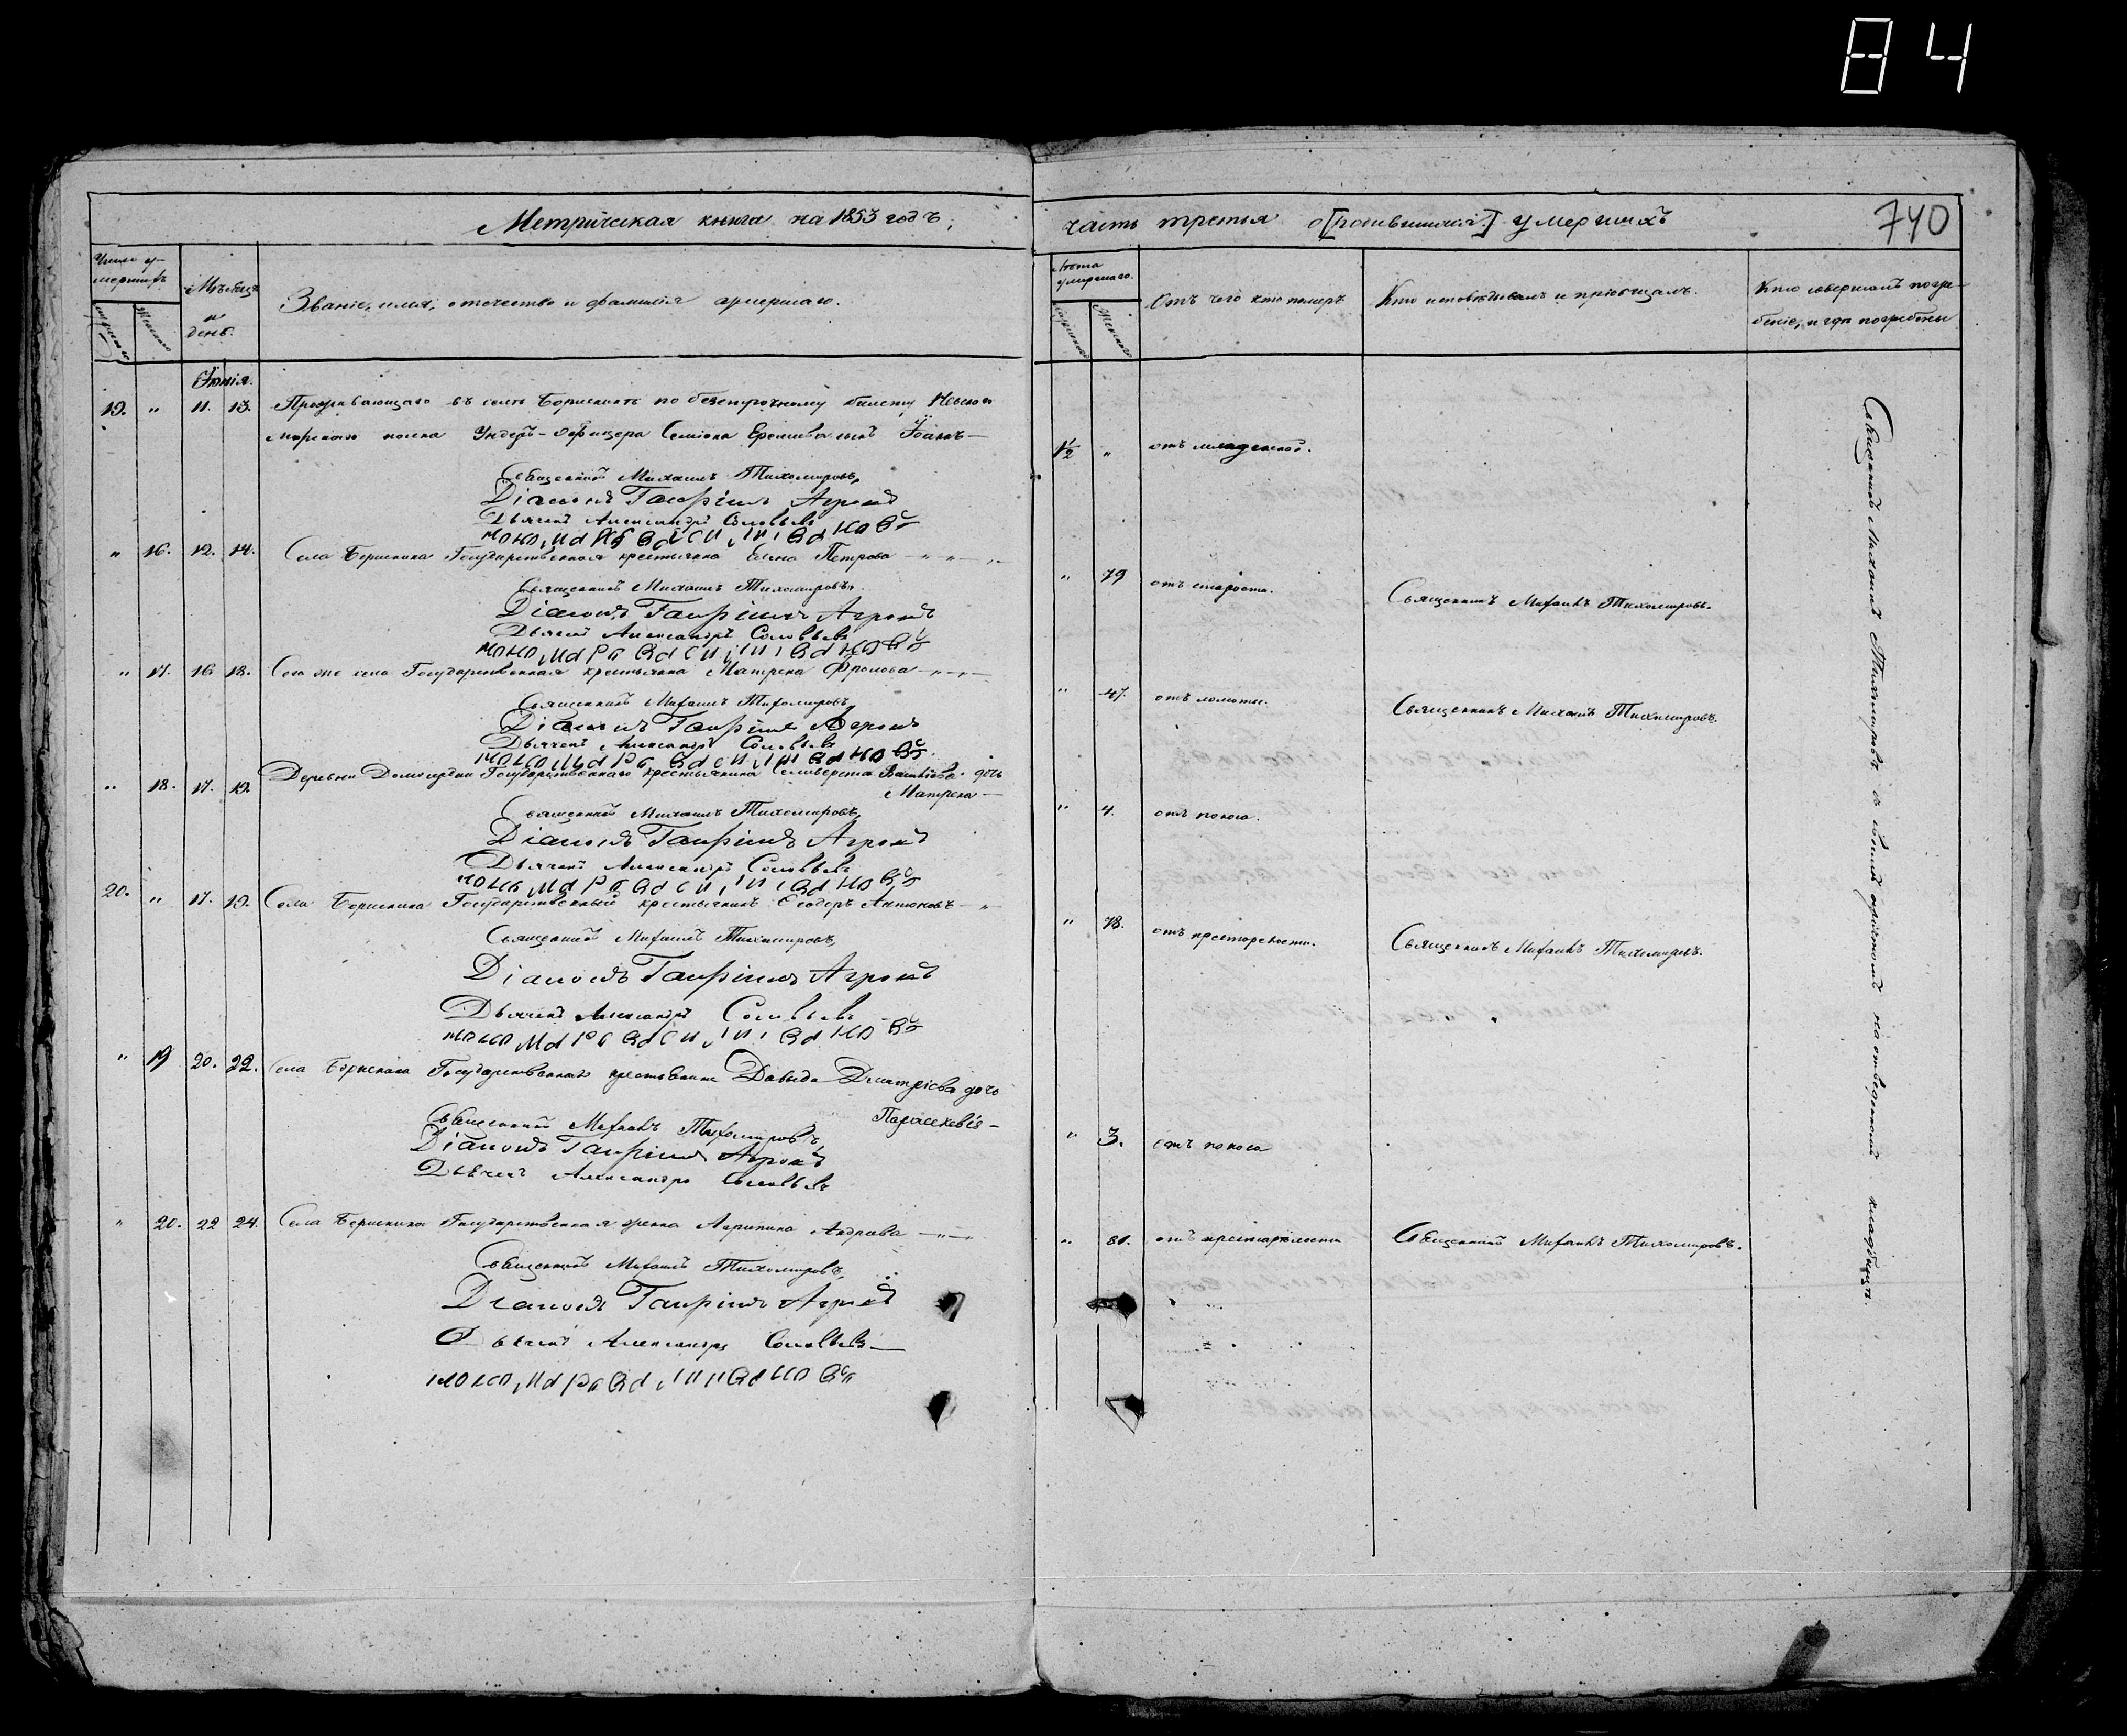 84
Метрическая книга на 1853 годъ,
часть третья о [родившихся] умершихъ
740
Число у-
мершихъ
Мужескаго
Женскаго
Мѣсяцъ
и
день.
Званіе, имя, отчество и фамилія умершаго.
Лѣта
умершаго.
Мужескаго
Женскаго
Отъ чего кто померъ
Кто исповѣдывалъ и пріобщалъ.
Кто совершалъ погре-
беніе, и гдѣ погребены
Іюнія.
19. " 11. 13. Проживающаго въ селѣ Борискинѣ по безсрочному билету Невскаго
морскаго полка Ундеръ-Офицера Семіона сынъ Іоаннъ —
1½ " отъ младенской.
Священникъ Михаилъ Тихомировъ,
Діаконъ Гавріилъ Агровъ
Дьячекъ Александръ Соловьевъ
" 16. 12. 14. Села Борискина Государственная крестьянка Елена Петрова — " — " —
" 79 отъ старости. Священникъ Михаилъ Тихомировъ.
Священникъ Михаилъ Тихомировъ,
Діаконъ Гавріилъ Агровъ
Дьячекъ Александръ Соловьевъ
" 17. 16 18. Сего же села Государственная крестьянка Матрена Фролова — " — " —
" 47. отъ ломоты. Священникъ Михаилъ Тихомировъ.
Священникъ Михаилъ Тихомировъ
Діаконъ Гавріилъ Агровъ
Дьячекъ Александръ Соловьевъ
" 18. 17. 19. Деревни Государственнаго крестьянина Селиверста дочь
Матрена —
" 4. отъ поноса.
Священникъ Михаилъ Тихомировъ,
Діаконъ Гавріилъ Агровъ
Дьячекъ Александръ Соловьевъ
20. " 17. 19. Села Борискина Государственный крестьянинъ Ѳеодоръ Антоновъ — "
" 78. отъ престарелости. Священникъ Михаилъ Тихомировъ.
Священникъ Михаилъ Тихомировъ
Діаконъ Гавріилъ Агровъ
Дьячекъ Александръ Соловьевъ
" 19 20. 22. Села Борискина Государственнаго крестьянина Давыда Дмитріева дочь
Параскевія —
" 3. отъ поноса
Священникъ Михаилъ Тихомировъ,
Діаконъ Гавріилъ Агровъ
Дьячекъ Александръ Соловьевъ
" 20. 22 24. Села Борискина Государственная Агрипина — " —
" 81. отъ престарелости Священникъ Михаилъ Тихомировъ.
Священникъ Михаилъ Тихомировъ,
Діаконъ Гавріилъ Агровъ
Дьячекъ Александръ Соловьевъ —
Священникъ Михаилъ Тихомировъ съ своимъ причтомъ на отведенномъ кладбищѣ.